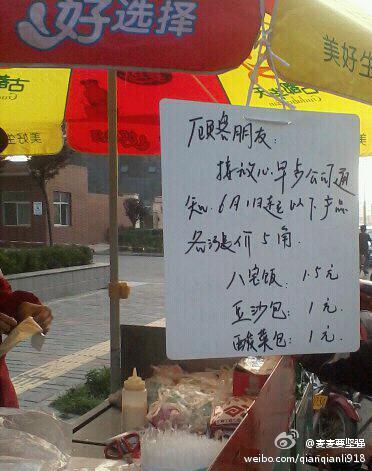 好选择
美好生
古船
美好生
顾客朋友:
接放心早步公司通
知.6月1日起以下产品
各涨价5角.
八宝饭:1.5元
豆沙包:1元
酸菜包:1元.
@麦麦要坚强
weibo.com/qianqianli918